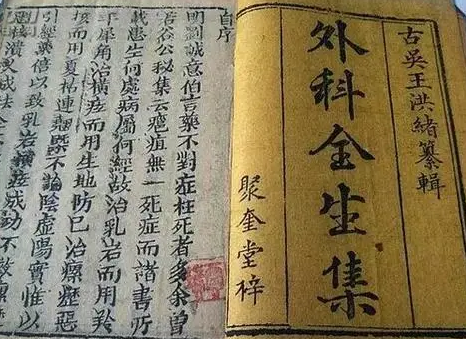 古吳王洪緒纂輯
外科全生集
聚奎堂梓
自序
明劉誠意伯言藥不對症枉死者多余曾
若谷公秘集云癰疽無一死症而諸書所
載患生何處病屬何經故治乳岩而用羚
羊犀角治橫痃而用生地防已治瘰癧惡
核而用夏枯連翹槩不論陰虛陽實惟以
引經藥倍以致乳岩橫痃成功不救瘰
核潰久成